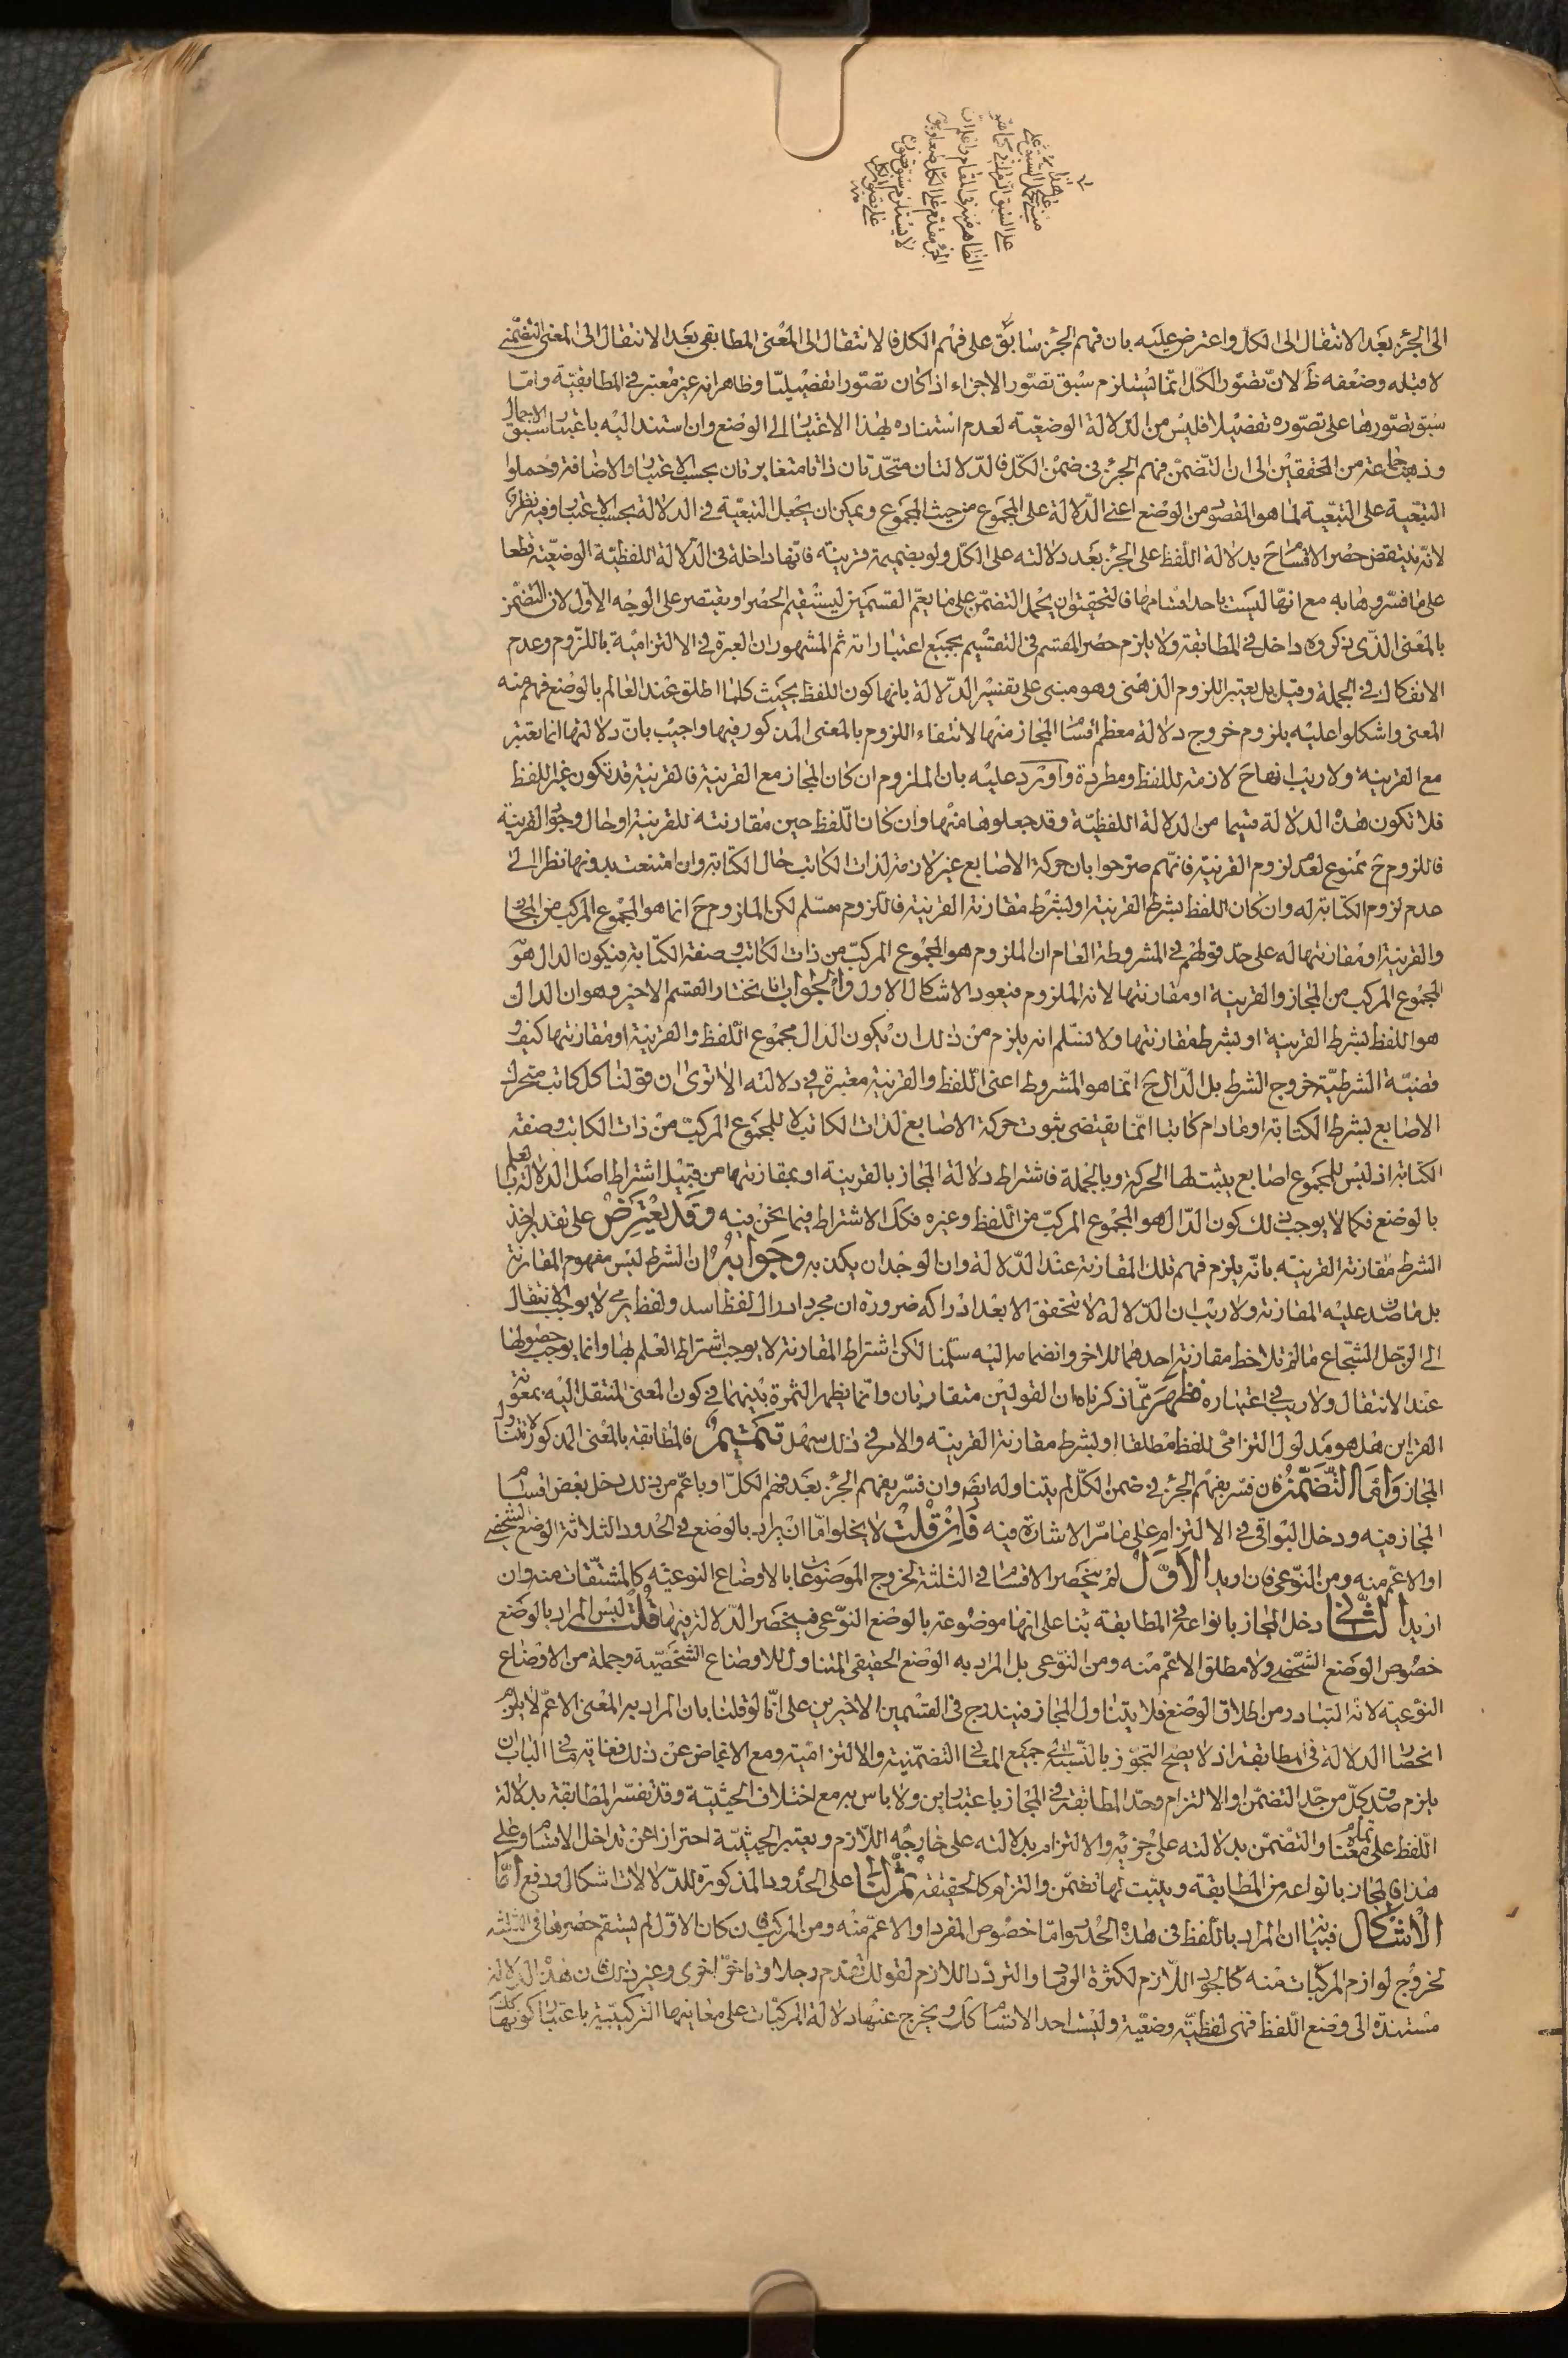 الى الجزء بعد الانتقال الى الكل واعترض عليه بان فهم الجزء سابق على فهم الكل فالانتقال الى المعنى المطابقى بعد الانتقال الى المعنى التضمنى
لا قبله وضعفه ظ لانّ تصوّر الكلّ انّما يستلزم سبق تصوّر الاجزاء اذا كان تصوّرا تفضيليّا وظاهر انه غير معتبر في المطابقيّة وامّا
سبق تصوّرها على تصوّره تفضيلا فليس من الدلالة الوضعيّة لعدم استناده بهذا الاعتبار الى الوضع وان استند اليه باعتبار سبق الاجمالى
وذهب جماعة من المحققين الى ان التضمن فهم الجزء فى ضمن الكلّ فالدلالتان متحدتان ذاتا متغايرتان بحسب الاعتبار والاضافة وحملوا
التبعية على التبعية لما هو المقصود من الوضع اعنى الدّلالة على المجموع من حيث المجموع ويمكن ان يجعل التبعيّة فى الدلالة بحسب الاعتبار وفيه نظر
لانّه ينتقض حصر الاقسام ح بدلالة اللّفظ على الجزء بعد دلالته على الكلّ ولو بضميمة قرينة فانّها داخلة فى الدلالة اللفظيّة الوضعيّة قطعا
على ما فسّروها به مع انّها ليست باحد اقسامها فالتحقيق ان يحمل التضمّن على ما يعمّ القسمين ليستقيم الحصر او يقتصر على الوجه الاوّل لان التضمن
بالمعنى الذى ذكروه داخل فى المطابقة ولا يلزم حصر المقسم فى التقسيم بجميع اعتباراته ثم المشهور ان العبرة فى الالتزاميّة باللّزوم وعدم
الانفكاك فى الجملة وقيل بل يعتبر اللزوم الذهنى وهو مبنى على تفسير الدّلالة بانها كون اللفظ بحيث كلما اطلق عند العالم بالوضع فهم منه
المعنى واشكلوا عليه بلزوم خروج دلالة معظم اقسام المجاز منها لانتفاء اللزوم بالمعنى المذكور فيها واجيب بانّ دلالتها انما تعتبر
مع القرينة ولا ريب انها ح لازمة لللفظ ومطردة واورد عليه بان الملزوم ان كان المجاز مع القرينة فالقرينة قد تكون غير اللفظ
فلا تكون هذه الدلالة قسيما من الدلالة اللفظيّة وقد جعلوها منها وان كان اللّفظ حين مقارنته للقرينة او حال وجود القرينة
فاللزوم ح ممنوع لعدم لزوم القرينة فانّهم صرّحوا بان حركة الاصابع غير لازمة لذات الكاتب حال الكتابة وان امتنعت بدونها نظرا الى
عدم لزوم الكتابة له وان كان اللفظ بشرط القرينة او بشرط مقارنة القرينة فاللزوم مسلم لكن الملزوم ح انما هو المجموع المركب من المجاز
والقرينة او مقارنتها له على حدّ قولهم فى المشروطة العام ان الملزوم هو المجموع المركبّ من ذات الكاتب وصفة الكتابة فيكون الدال هو
المجموع المركب من المجاز والقرينة او مقارنتها لانه الملزوم فيعود الاشكال الاول والجواب انا نختار القسم الاخير وهو ان الدال
هو اللفظ بشرط القرينة او بشرط مقارنتها ولا نسّلم انه يلزم من ذلك ان يكون الدال مجموع اللّفظ والقرينة او مقارنتها كيف و
قضيّة الشرطيّة خروج الشرط بل الدّال ح انّما هو المشروط اعنى اللّفظ والقرينة معتبرة فى دلالته الا ترى ان قولنا كل كاتب متحرك
الاصابع بشرط الكتابة او ما دام كاتبا انّما يقتضى ثبوت حركة الاصابع لذات الكاتب لا للمجموع المركبّ من ذات الكاتب وصفة
الكتابة اذ ليس للمجموع اصابع يثبت لها الحركة وبالجملة فاشتراط دلالة المجاز بالقرينة او بمقارنتها من قبيل اشتراط اصل الدلالة بالعلم
بالوضع فكما لا يوجب ذلك كون الدّال هو المجموع المركبّ من اللّفظ وغيره فكذلك الاشتراط فيما نحن فيه وقد يعترض على تقدير اخذ
الشرط مقارنة القرينة بانّه يلزم فهم تلك المقارنة عند الدّلالة وان الوجدان يكذبه وجوابه ان الشرط ليس مفهوم المقارنة
بل ما صدق عليه المقارنة ولا ريب ان الدّلالة لا تتحقق الا بعد ادراكه ضرورة ان مجرد ادراك لفظ اسد ولفظ يرمى لا يوجب الانتقال
الى الرجل الشجاع ما لم تلاحظ مقارنة احدهما للاخر وانضمامه اليه سلّمنا لكن اشتراط المقارنة لا يوجب اشتراط العلم بها وانما يوجب حضولها
عند الانتقال ولا ريب فى اعتباره فظهر ممّا ذكرناه ان القولين متقاربان وانّما يظهر الثمرة بينهما فى كون المعنى المنتقل اليه بمعونة
القراين هل هو مدلول التزامى للفظ مطلقا او بشرط مقارنة القرينة والامر فى ذلك سهل تتميم فالمطابقة بالمعنى المذكور لا تتناول
المجاز وامّا التّضمّن فان فسّر بفهم الجزء فى ضمن الكلّ لم يتناوله ايض وان فسّر بفهم الجزء بعد فهم الكلّ او باعمّ من ذلك دخل بعض اقسام
المجاز فيه ودخل البواقى فى الالتزام على ما مرّ الاشارة فيه فان قلت لا يخلو امّا ان يراد بالوضع فى الحدود الثلاثة الوضع الشخصى
او الاعمّ منه ومن النّوعى فان اريد الاوّل لم ينحصر الاقسام فى الثلثة لخروج الموضوعات بالاوضاع النوعيّه كالمشتقّات منه وان
اريد الثانى دخل المجاز بانواعه فى المطابقة بنا على انها موضوعة بالوضع النوّعى فينحصر الدّلالة فيها قلت ليس المراد بالوضع
خصوص الوضع الشخصى ولا مطلق الاعمّ منه ومن النوّعى بل المراد به الوضع الحقيقى المتناول للاوضاع الشخصيّة وجملة من الاوضاع
النوعية لانه المتبادر من اطلاق الوضع فلا يتناول المجاز فيندرج فى القسمين الاخيرين على انّا لو قلنا بان المراد به المعنى الاعمّ لا يلزم
انحصار الدلالة فى المطابقة اذ لا يصح التجوّز بالنّسبة الى جميع المعانى التضمنية والالتزاميّة ومع الاغماض عن ذلك فغاية ما فى الباب ان
يلزم صدق كلّ من حدّ التضمّن او الالتزام وحدّ المطابقة فى المجاز باعتبارين ولا باس به مع اختلاف الحيثيّة وقد تفسّر المطابقة بدلالة
اللّفظ على تمام معناه والتضمّن بدلالته على جزئه والالتزام بدلالته على خارجه اللّازم ويعتبر الحيثيّة احترازا عن تداخل الاقسام وعلى
هذا فالمجاز بانواعه من المطابقة ويثبت لها تضمّن والتزام كالحقيقة ثم لنا على الحدود المذكورة للدّلالات اشكال ودفع امّا
الاشكال فبيانه ان المراد باللّفظ فى هذه الحدود امّا خصوص المفرد او الاعمّ منه ومن المركب فان كان الاوّل لم يستقم حصرها فى الثلثه
لخروج لوازم المركّبات منه كالجود اللّازم لكثرة الرماد والتردّد اللازم لقولك تقدم رجلا وتاخرّ اخرى وغير ذلك فان هذه الدلالة
مستندة الى وضع اللّفظ فهى لفظيّه وضعيّة وليست احد الاقسام كك ويخرج عنها دلالة المركبّات على معانيها التركيبيّة باعتبار كونها كك